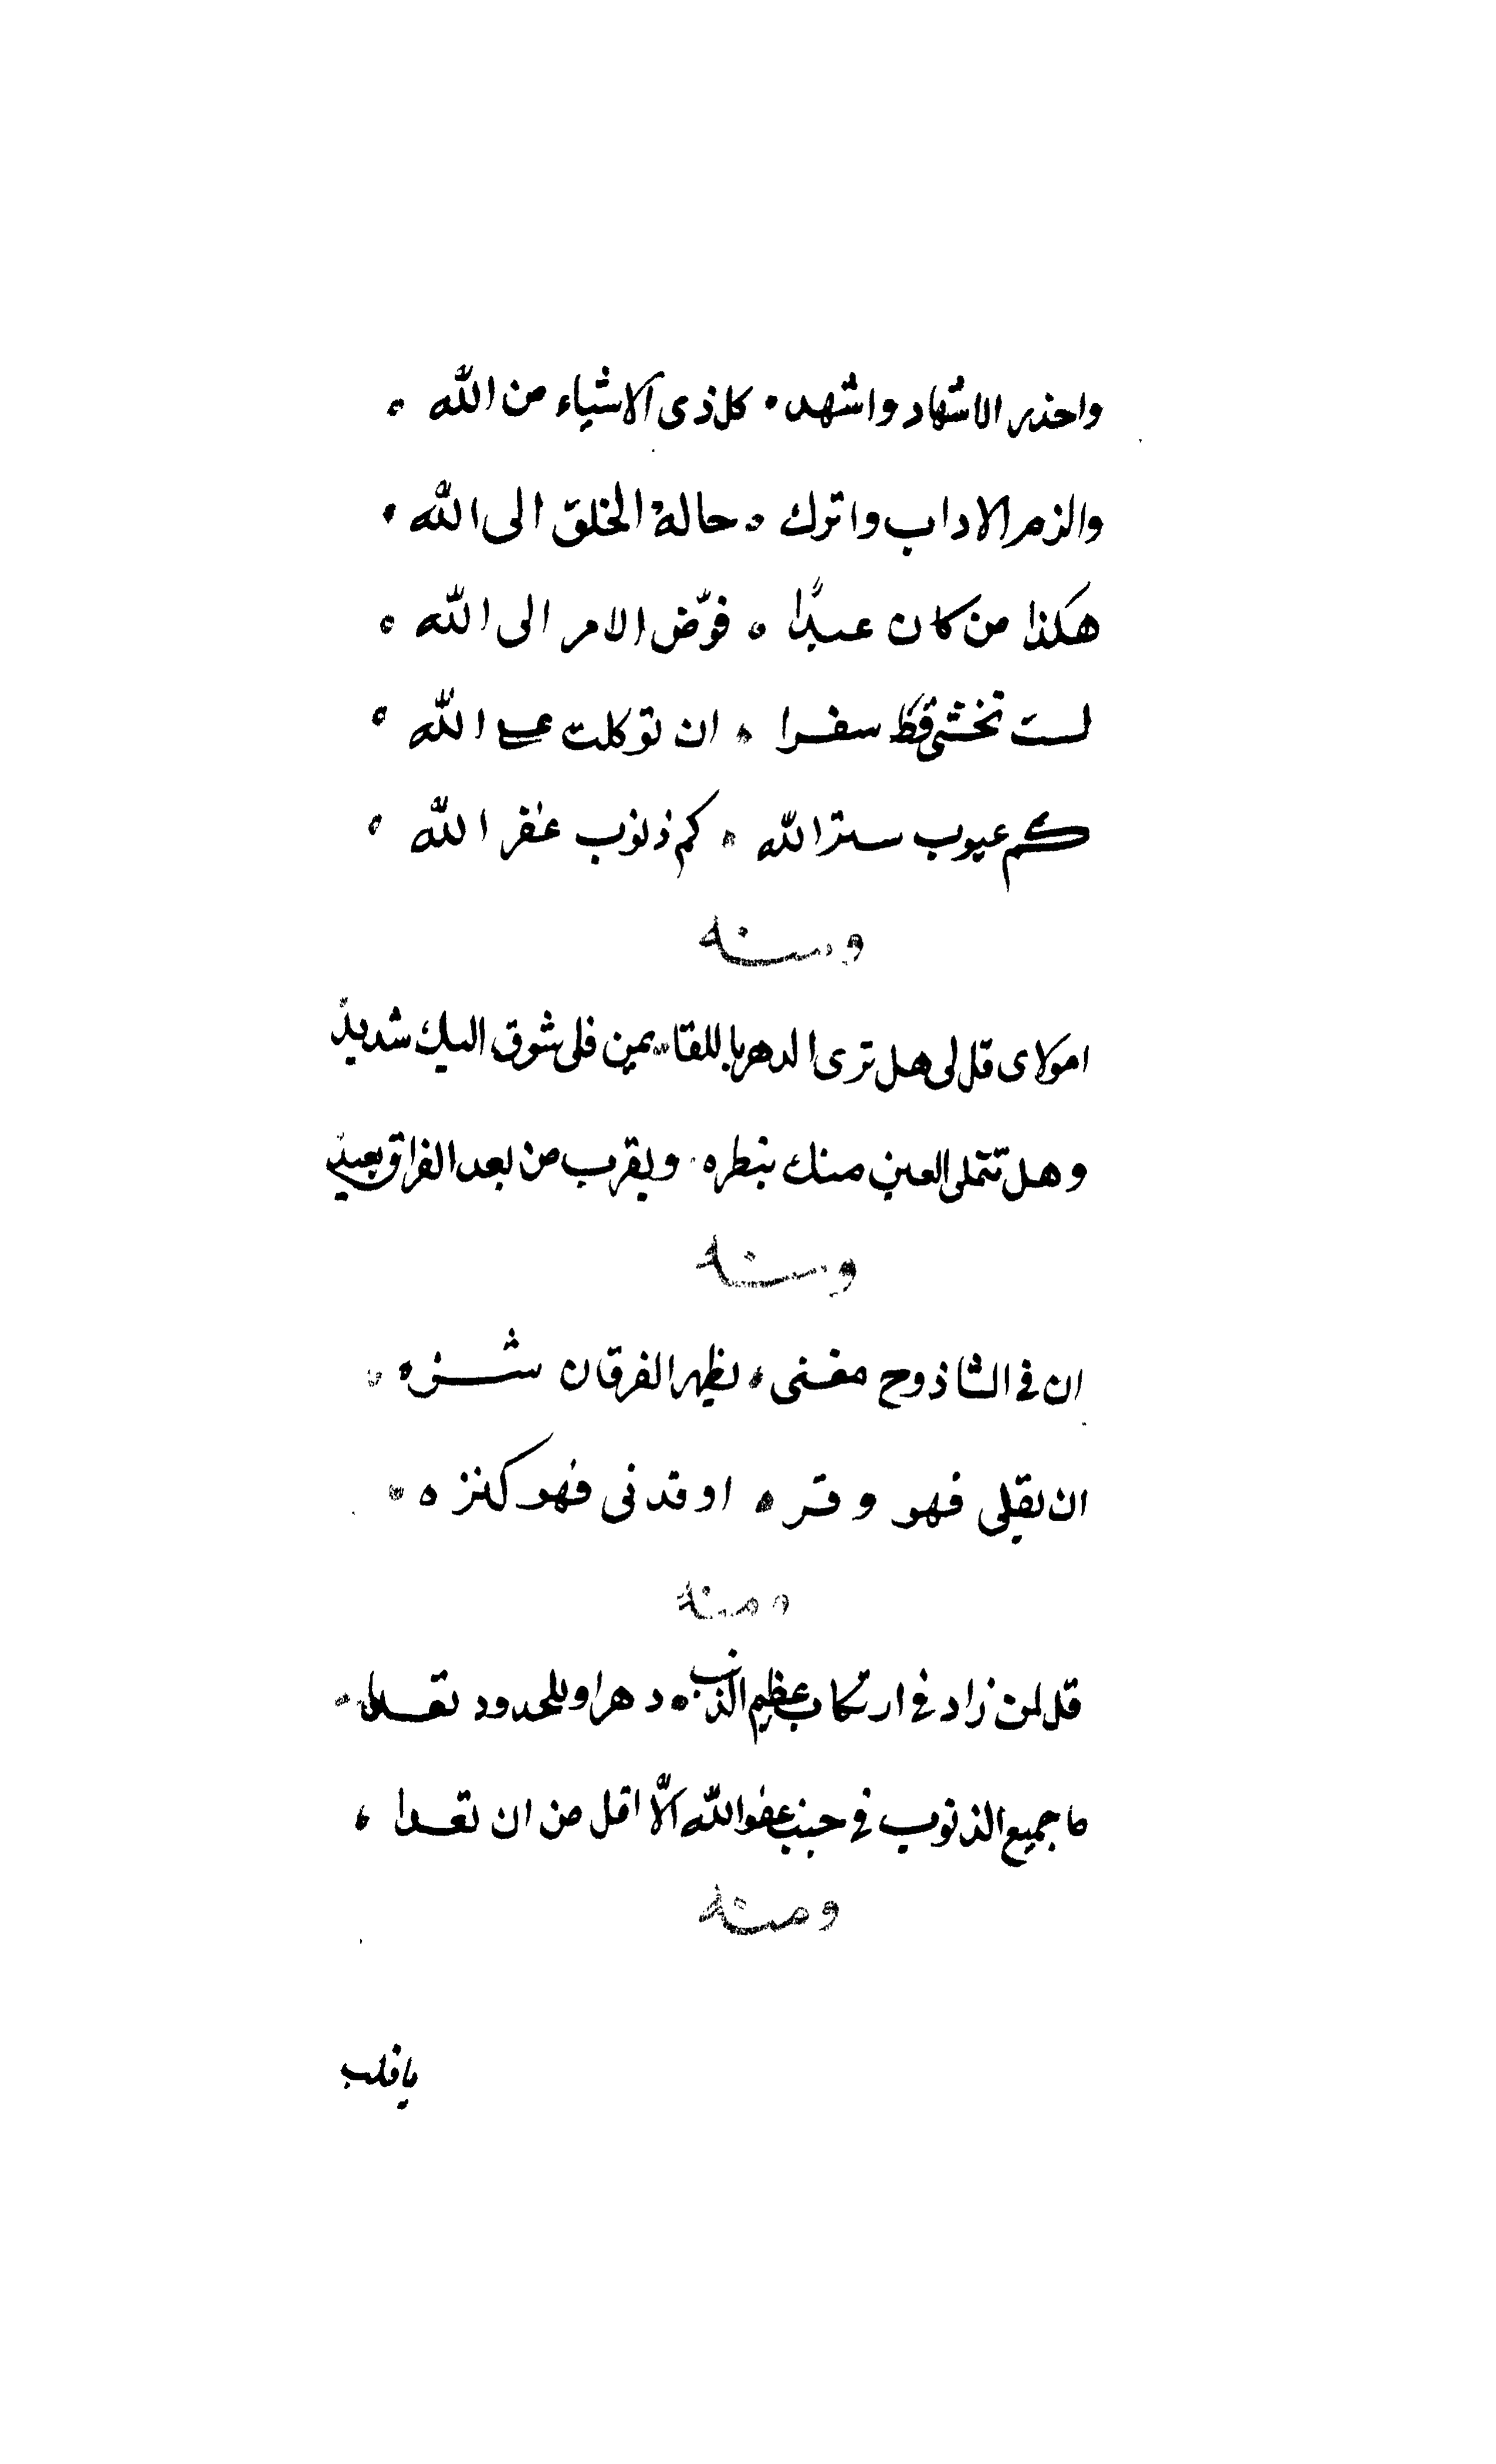 واحذر الاشهاد واشهد • كل ذى الاشياء من الله ه
والزم الاداب واترك ه حالة الخلق الى الله •
هكذا من كان عبدًا ه فوّض الامر الى الله ه
لست تخشى قط سفرا ه ان توكلت على الله ه
كم عيوب ستر الله ه كم ذنوب غفر الله ه
ومنه
امولاى قل لى هل ترى الدهر باللقاء يمن فلى شوق اليك شديد
وهل تتملى العين منك بنظره ويقرب من بعد الفراق بعيد
ومنه
ان فى الشاذوح مغنى ه يظهر الفرقان
ان يقلى فهو وقر ه او قدنى فهو كنزه
ومنه
قل لمن زاد فى ارتكاب عظيم الذنب ه دهرا وللحدود تعدا
ما جميع الذنوب فى جنب عفو الله الّا اقل من ان تعدا ه
ومنه
يا قلب